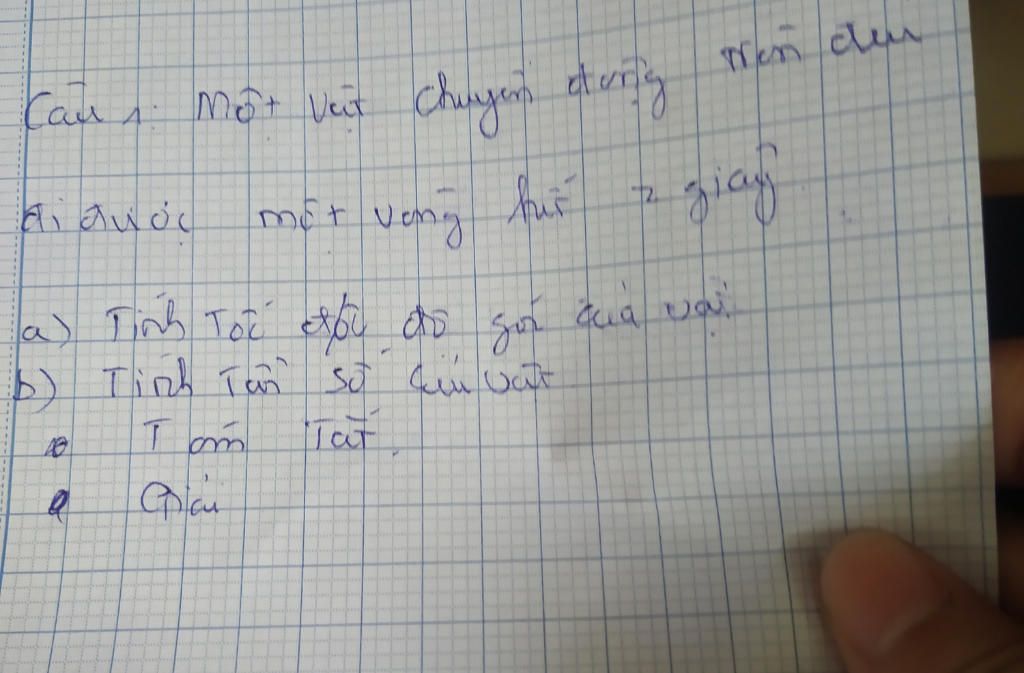 Câu 1: Một vật chuyển động tròn đều
đi được một vòng hết 2 giây
a) Tính Tốc độ góc của vật
b) Tính Tần số của vật
Tóm Tắt
Giải